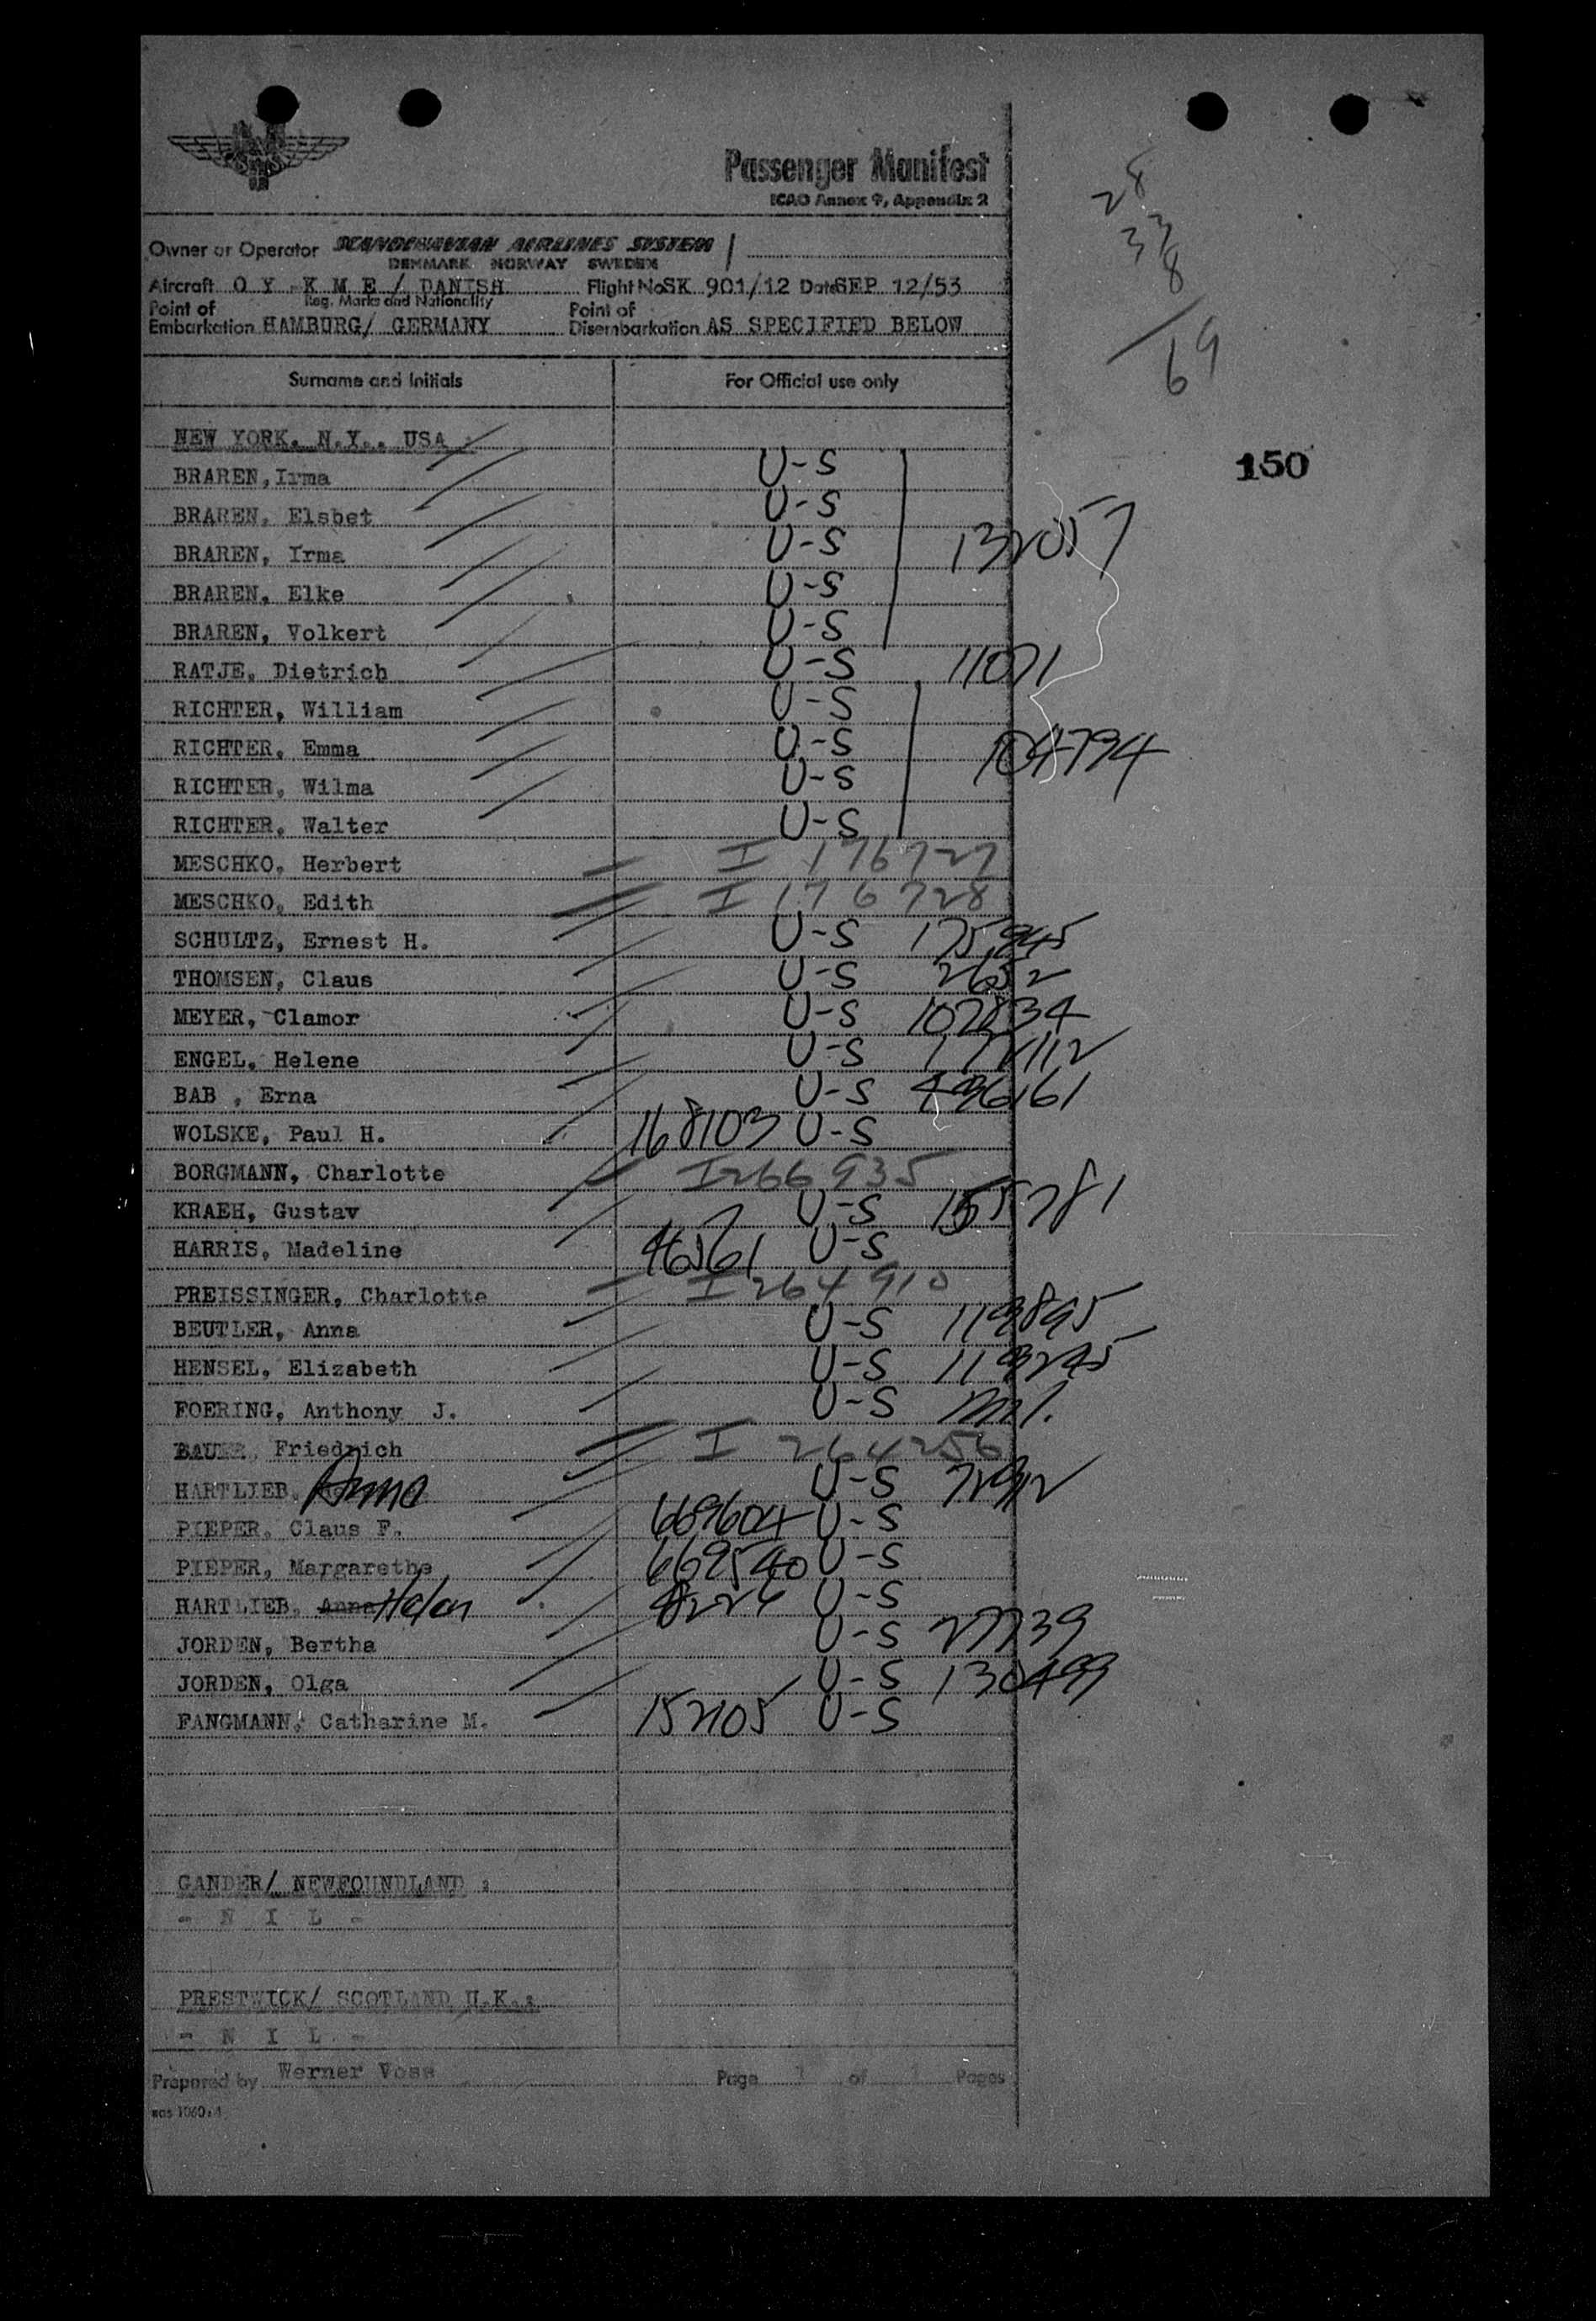 SAS
Passenger Manifest
ICAO Annex 9, Appendix 2
28
33
8
69
Owner or Operator SCANDINAVIAN AIRLINES SYSTEM
DENMARK NORWAY SWEDEN
Aircraft O Y - K M E / DANISH Flight No SK 901/12 Date SEP 12/53
Reg. Marks and Nationality
Point of Embarkation HAMBURG/ GERMANY Point of Disembarkation AS SPECIFIED BELOW
Surname and Initials For Official use only
150
NEW YORK. N.Y.. USA :
BRAREN, Irma U-S
BRAREN, Elsbet U-S
BRAREN, Irma U-S 132057
BRAREN, Elke U-S
BRAREN, Volkert U-S
RATJE, Dietrich U-S 11071
RICHTER, William U-S
RICHTER, Emma U-S 104794
RICHTER, Wilma U-S
RICHTER, Walter U-S
MESCHKO, Herbert I 176727
MESCHKO, Edith I 176728
SCHULTZ, Ernest H. U-S 175845
THOMSEN, Claus U-S 2652
MEYER, Clamor U-S 107834
ENGEL, Helene U-S 172112
BAB , Erna U-S
WOLSKE, Paul H. 168103 U-S
BORGMANN, Charlotte I 266935
KRAEH, Gustav U-S 155781
HARRIS, Madeline U-S
PREISSINGER, Charlotte I 264910
BEUTLER, Anna U-S 119895
HENSEL, Elizabeth U-S
FOERING, Anthony J. U-S
BAUER, Friedrich I 264256
HARTLIEB, Anna U-S
PIEPER, Claus F. 669604 U-S
PIEPER, Margarethe 669540 U-S
HARTLIEB, Anna Helen U-S
JORDEN, Bertha U-S 27739
JORDEN, Olga U-S 130499
FANGMANN, Catharine M. 152105 U-S
GANDER/ NEWFOUNDLAND :
- N I L -
PRESTWICK/ SCOTLAND U.K.:
- N I L -
Prepared by Werner Voss Page 1 of 1 Pages